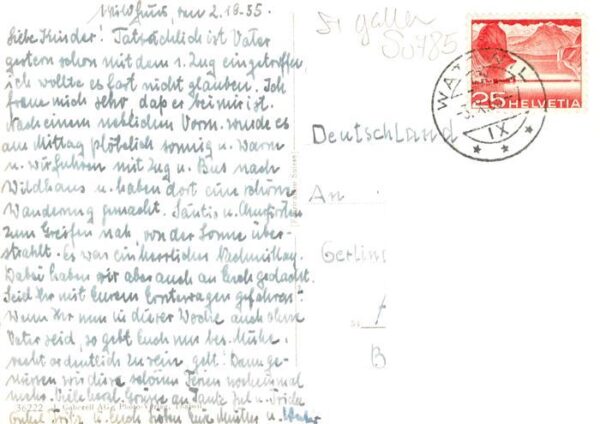 Wildhaus, den 2.10.55.
Liebe Kinder! Tatsächlich ist Vater
gestern schon mit dem 1. Zug eingetroffen,
ich wollte es fast nicht glauben. Ich
freue mich sehr, daß er bei mir ist.
Nach einem neblichen Vorm. wurde es
am Mittag plötzlich sonnig u. warm
u. wir fuhren mit Zug u. Bus nach
Wildhaus u. haben dort eine schöne
Wanderung gemacht. Säntis u. Churfirsten
zum Greifen nah von der Sonne über-
strahlt. Es war ein herrlicher Nachmittag.
Dabei haben wir aber auch an Euch gedacht.
Seid Ihr mit Eurem Erntewagen gefahren?
Wenn Ihr nun in dieser Woche auch ohne
Vater seid, so gebt Euch nur bes. Mühe,
recht ordentlich zu sein gelt! Dann ge-
nießen wir diese schönen Ferien nocheinmal
Viele herzl. Grüsse an Tante u.
Onkel Fritz u. Euch lieben Eure Mutter u. Vater
36222
St gallen
Su485
25 HELVETIA
WATTWIL
IX
Deutschland
An
Gerling
B